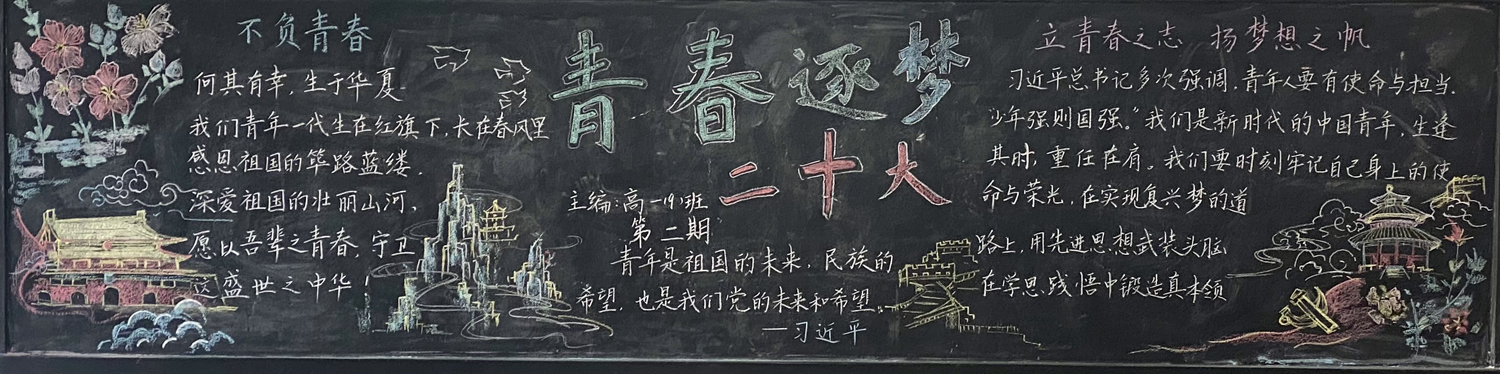 不负青春
何其有幸，生于华夏
我们青年一代生在红旗下，长在春风里
感恩祖国的筚路蓝缕，
深爱祖国的壮丽山河，
愿以吾辈之青春，守卫
这盛世之中华！
青春逐梦
二十大
主编:高一(9)班
第二期
青年是祖国的未来，民族的
希望，也是我们党的未来和希望。
——习近平
立青春之志 扬梦想之帆
习近平总书记多次强调，青年人要有使命与担当.
“少年强则国强。”我们是新时代的中国青年，生逢
其时，重任在肩。我们要时刻牢记自己身上的使
命与荣光，在实现复兴梦的道
路上，用先进思想武装头脑
在学思践悟中锻造真本领